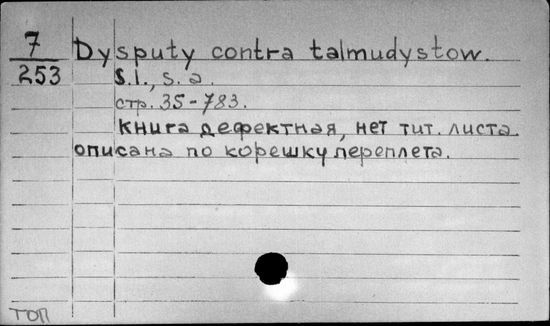 7 Dysputy contra talmudystow.
253 S.l., s. a.
стр. 35-783.
книга дефектная, нет тит. листа
описана по корешку переплета.
ТОП